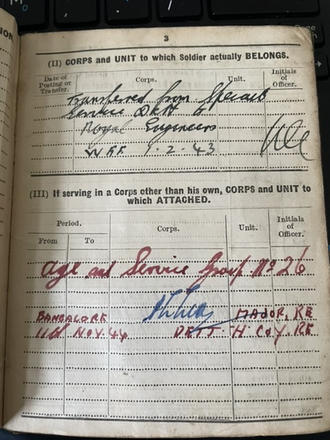 3
(II) CORPS and UNIT to which Soldier actually BELONGS.
Date of Posting or Transfer.
Corps.
Unit.
Initials of Officer.
Transferred from Special
Service
Royal Engineers
WEF 1.2.43
(III) If serving in a Corps other than his own, CORPS and UNIT to
which ATTACHED.
Period.
From To
Corps.
Unit.
Initials of Officer.
Age and Service Group No 26
BANGALORE MAJOR. RE
11th NOV. 44 DETT. H COY. RE